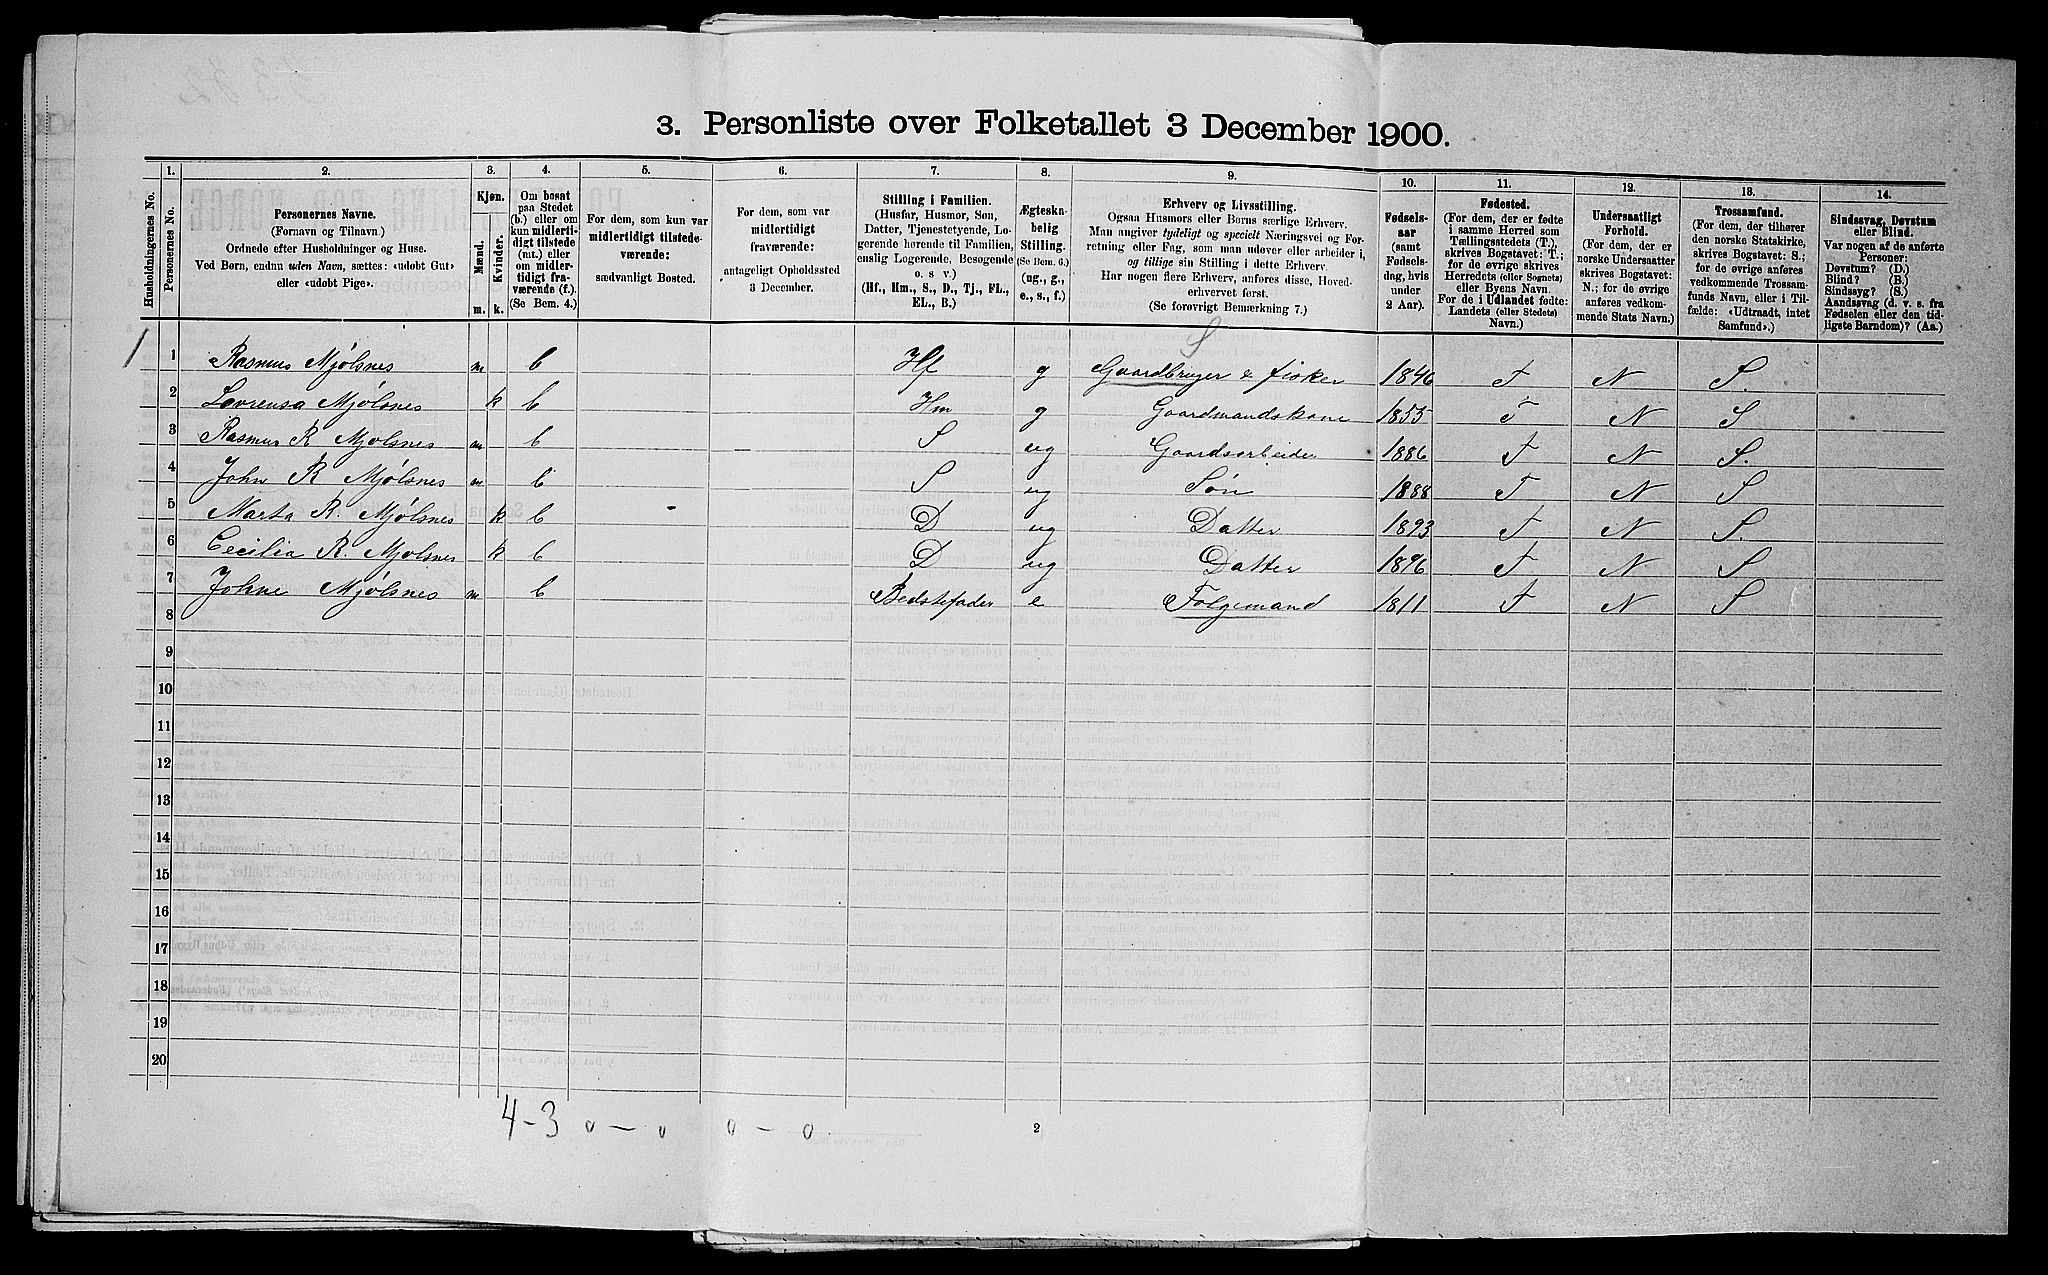 3. Personliste over Folketallet 3 December 1900.
Husholdningernes No.
1.
Personernes No.
2.
Personernes Navne.
(Fornavn og Tilnavn.)
Ordnede efter Husholdninger og Huse.
Ved Børn, endnu uden Navn, sættes: «udøbt Gut»
eller «udøbt Pige».
3.
Kjøn.
Mænd.
Kvinder.
m. k.
4.
Om bosat
paa Stedet
(b.) eller om
kun midlerti-
digt tilstede
(mt.) eller
om midler-
tidigt fra-
værende (f.).
(Se Bem. 4.)
5.
For dem, som kun var
midlertidigt tilstede-
værende:
sædvanligt Bosted.
6.
For dem, som var
midlertidigt
fraværende:
antageligt Opholdssted
3 December.
7.
Stilling i Familien.
(Husfar, Husmor, Søn,
Datter, Tjenestetyende, Lo-
gerende hørende til Familien,
enslig Logerende, Besøgende
o. s. v.)
(Hf., Hm., S., D., Tj., FL.,
EL., B.)
8.
Ægteska-
belig
Stilling.
(Se Bem. 6.)
(ug., g.,
e., s., f.)
9.
Erhverv og Livsstilling.
Ogsaa Husmors eller Børns særlige Erhverv.
Man angiver tydeligt og specielt Næringsvei og For-
retning eller Fag, som man udøver eller arbeider i,
og tillige sin Stilling i dette Erhverv.
Har nogen flere Erhverv, anføres disse, Hoved-
erhvervet først.
(Se forøvrigt Bemærkning 7.)
10.
Fødsels-
aar
(samt
Fødsels-
dag, hvis
under
2 Aar).
11.
Fødested.
(For dem, der er fødte
i samme Herred som
Tællingsstedets (T.),
skrives Bogstavet: T.;
for de øvrige skrives
Herredets (eller Sognets)
eller Byens Navn.
For de i Udlandet fødte:
Landets (eller Stedets)
Navn.)
12.
Undersaatligt
Forhold.
(For dem, der er
norske Undersaatter
skrives Bogstavet:
N.; for de øvrige
anføres vedkom-
mende Stats Navn.)
13.
Trossamfund.
(For dem, der tilhører
den norske Statskirke,
skrives Bogstavet: S.;
for de øvrige anføres
vedkommende Trossam-
funds Navn, eller i Til-
fælde: «Udtraadt, intet
Samfund».)
14.
Sindssvag, Døvstum
eller Blind.
Var nogen af de anførte
Personer:
Døvstum? (D.)
Blind? (B.)
Sindssyg? (S.)
Aandssvag (d. v. s. fra
Fødselen eller den tid-
ligste Barndom)? (Aa.)
S
1 1 Rasmus Mjølsnes m b Hf g Gaardbruger & fisker 1846 T N S.
2 Lovrensa Mjølsnes k b Hm g Gaardmandskone 1855 T N S
3 Rasmus R Mjølsnes m b S ug Gaardsarbeider 1886 T N S.
4 John R Mjølsnes m b S ug Søn 1888 T N S
5 Marta R. Mjølsnes k b D ug Datter 1893 T N S.
6 Cecilia R. Mjølsnes k b D ug Datter 1896 T N S
7 Johne Mjølsnes m b Bedstefader e Folgemand 1811 T N S
8
9
10
11
12
13
14
15
16
17
18
19
20
4-3 0-0 0-0
2